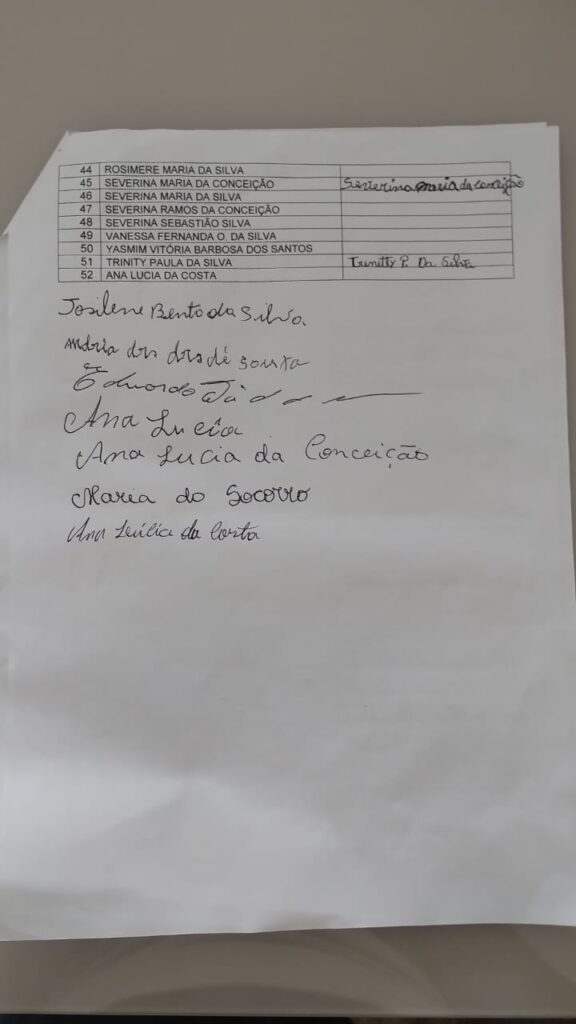 44 ROSIMERE MARIA DA SILVA
45 SEVERINA MARIA DA CONCEIÇÃO Severina maria da conceição
46 SEVERINA MARIA DA SILVA
47 SEVERINA RAMOS DA CONCEIÇÃO
48 SEVERINA SEBASTIÃO SILVA
49 VANESSA FERNANDA O. DA SILVA
50 YASMIM VITÓRIA BARBOSA DOS SANTOS
51 TRINITY PAULA DA SILVA P. Da Silva
52 ANA LUCIA DA COSTA
Josilene Bento da Silva
Eduardo
Ana Lucia
Ana Lucia da Conceição
Maria do Socorro
Ana da Costa